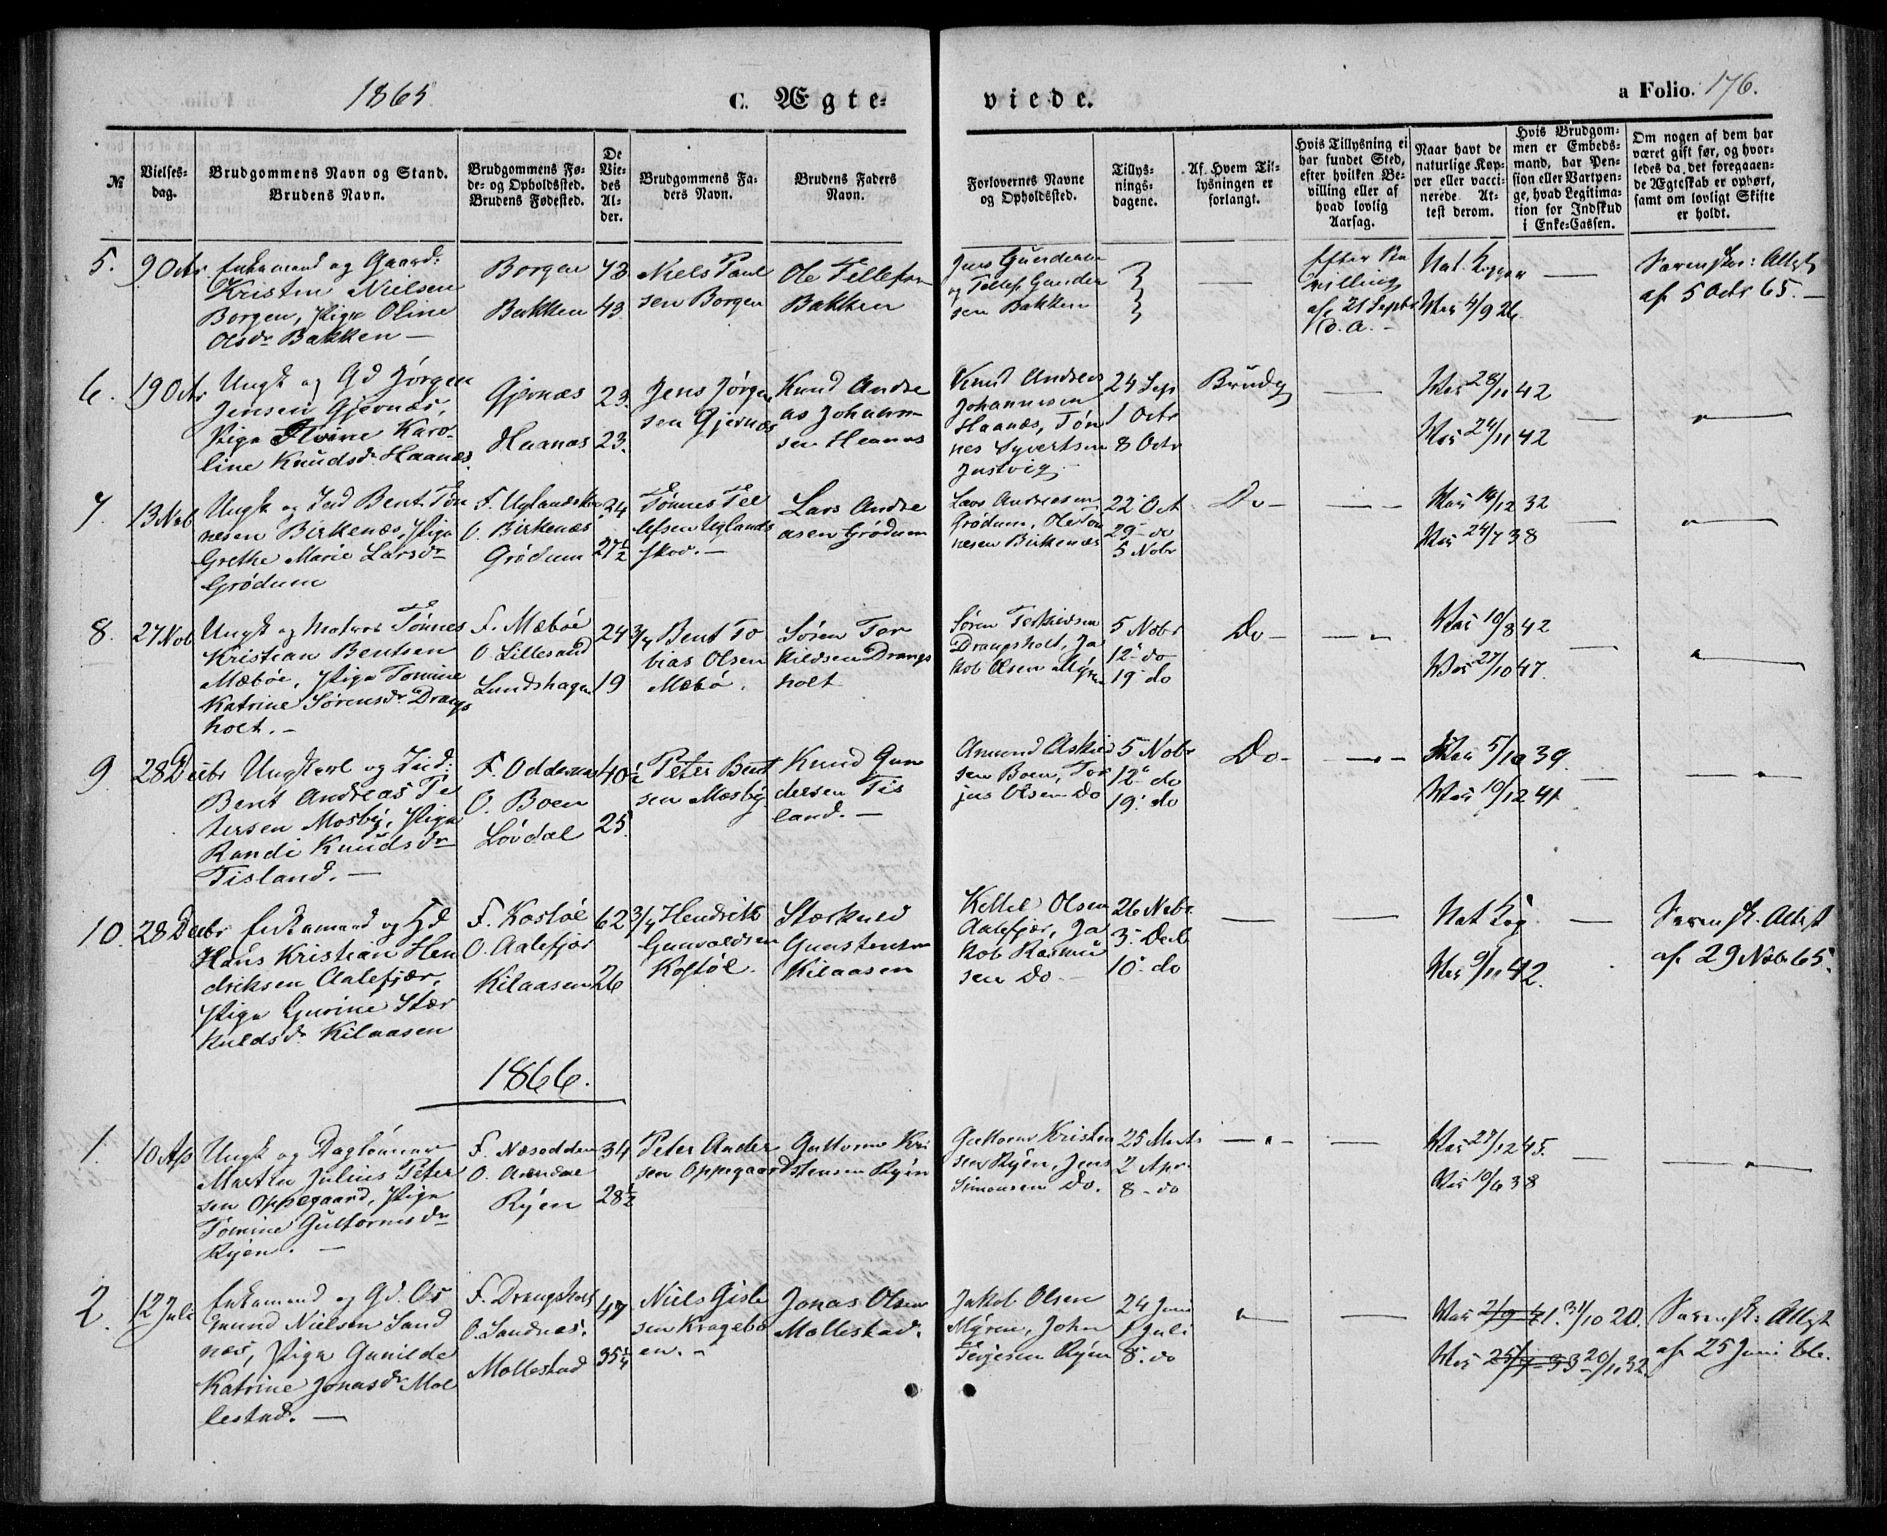 1865.
C. Ægte-
viede.
a Folio. 176.
№
Vielses-
dag.
Brudgommens Navn og Stand.
Brudens Navn.
Brudgommens Fø-
de- og Opholdssted.
Brudens Fødested.
De
Vie-
des
Al-
der.
Brudgommens Fa-
ders Navn.
Brudens Faders
Navn.
Forlovernes Navne
og Opholdssted.
Tillys-
nings-
dagene.
Af Hvem Til-
lysningen er
forlangt.
Hvis Tillysning ei
har fundet Sted,
efter hvilken Be-
villing eller af
hvad lovlig
Aarsag.
Naar havt de
naturlige Kop-
per eller vacci-
nerede. At-
test derom.
Hvis Brudgom-
men er Embeds-
mand, har Pen-
sion eller Vartpen-
ge, hvad Legitima-
tion for Indskud
i Enke-Cassen.
Om nogen af dem har
været gift før, og hvor-
ledes da det foregaaen-
de Ægteskab er ophørt,
samt om lovligt Skifte
er holdt.
5.
9 Octr
Enkemand og Gaard:
Kristen Nielsen
Borgen, Pige Oline
Olsdr Bakken —
Borgen
Bakken
43
43
Niels Paul
sen Borgen
Ole Tellefsen
Bakken
Jens Gundersen
og Tellef Gunder
sen Bakken
—
Efter Be
villing
af 21 Septbr
d. A. —
Nat. Kopper
Vac 4/9 26
—
Sorenskr: Attest
af 5 Octr 65. —
6.
19 Octr
Ungk og Gd Jørgen
Jensen Gjernæs,
Pige Elvine Karo-
line Knudsdr Haanæs.
Gjernæs
Haanæs
23.
23.
Jens Jørgen
sen Gjernæs
Knud Andre
as Johann-
sen Haanæs
Knud Andreas
Johannesen
Haanæs, Tøn
nes Syvertsen
Justvig
24 Sep
1 Octr
8 Octr
Brudg
—
Vac 28/11 42
Vac 24/11 42
—
7.
13 Nob
Ungk og Ind Bent Tøn
nesen Birkenæs, Pige
Grethe Marie Larsdr
Grødum
F. Uglandskov
O. Birkenæs
Grødum
24
27 1/2
Tønnes Tel
lefsen Uglands
skov. —
Lars Andre
asen Grødum
Lars Andreasen
Grødum, Ole Tøn
nesen Birkenæs
22 Oct
29 – do
5 Nobr
Do —
Vac 14/12 32
Vac 24/7 38
—
8.
27 Nob
Ungk og Matros Tønnes
Kristian Bentsen
Mæbøe, Pige Tomine
Katrine Sørensdr Drangs
holt. —
F. Mæbøe
O. Lillesand
Lundshagen
24 3/4
19
Bent To
bias Olsen
Mæbø.
Søren Ter
kildsen Drangs
holt
Søren Terkildsen
Drangsholt, Ja
kob Olsen Myren
5 Nobr
12 – do
19 do
Do —
Vac 10/8 42
Vac 27/10 47.
—
9
28 Decbr
Ungkarl og Ind:
Bent Andreas Pe
tersen Mosby, Pige
Randi Knudsdr
Tisland. —
F. Oddernes
O. Boen
Løvdal
40 1/2
25
Peter Bent
sen Mosby
Knud Gun
dersen Tis
land. —
Amund Aslak
sen Boen, Tor
jus Olsen Do
5 Nobr
12 – do
19 do
Do —
Vac 5/10 39.
Vac 10/12 41.
—
10.
28 Decbr
Enkemand og Gd
Hans Kristian Hen
driksen Aalefjær,
Pige Gurine Stær
kuldsdr Kilaasen
F. Kostøl
O. Aalefjær
Kilaasen
62 3/4
26
Hendrik
Gunvaldsen
Kostøl.
Stærkuld
Gunstensen
Kilaasen
Kittel Olsen
Aalefjær, Ja
kob Rasmu
sen Do
26 Nobr
3 – Decb
10 – do
—
Nat. Kop
Vac 9/11 42.
—
Sorensk. Attest
af 29 Nobr 65.
1866.
1.
10 Ap
Ungk og Dagløner
Martin Julius Peter
sen Oppegaard, Pige
Tomine Guttormsdr
Ryen. —
F. Næsodden
O. Arendal
Ryen
34
28 1/2
Peter Ander
sen Oppegaard
Guttorm Kri
stensen Ryen
Guttorm Kristen
sen Ryen, Jens
Simonsen Do.
25 Marts
2 Apr.
8 – do
Vac 27/12 45.
Vac 10/6 38
—
2.
12 Juli
Enkemand og Gd. Os
mund Nielsen Sand
næs, Pige Gunilde
Katrine Jonasdr Mol
lestad. —
F. Drangsholt
O. Sandnæs.
Mollestad
47
35 1/4
Niels Gisle
sen Kragebo
en. —
Jonas Olsen
Mollestad.
Jakob Olsen
Myren, John
Terjesen Ryen
24 Juni
1 Juli
8. do
—
Vac 2/9 41. 31/10 20.
Vac 25/7 33 20/11 32.
Sorensk: Attest
af 25 Juni 66.